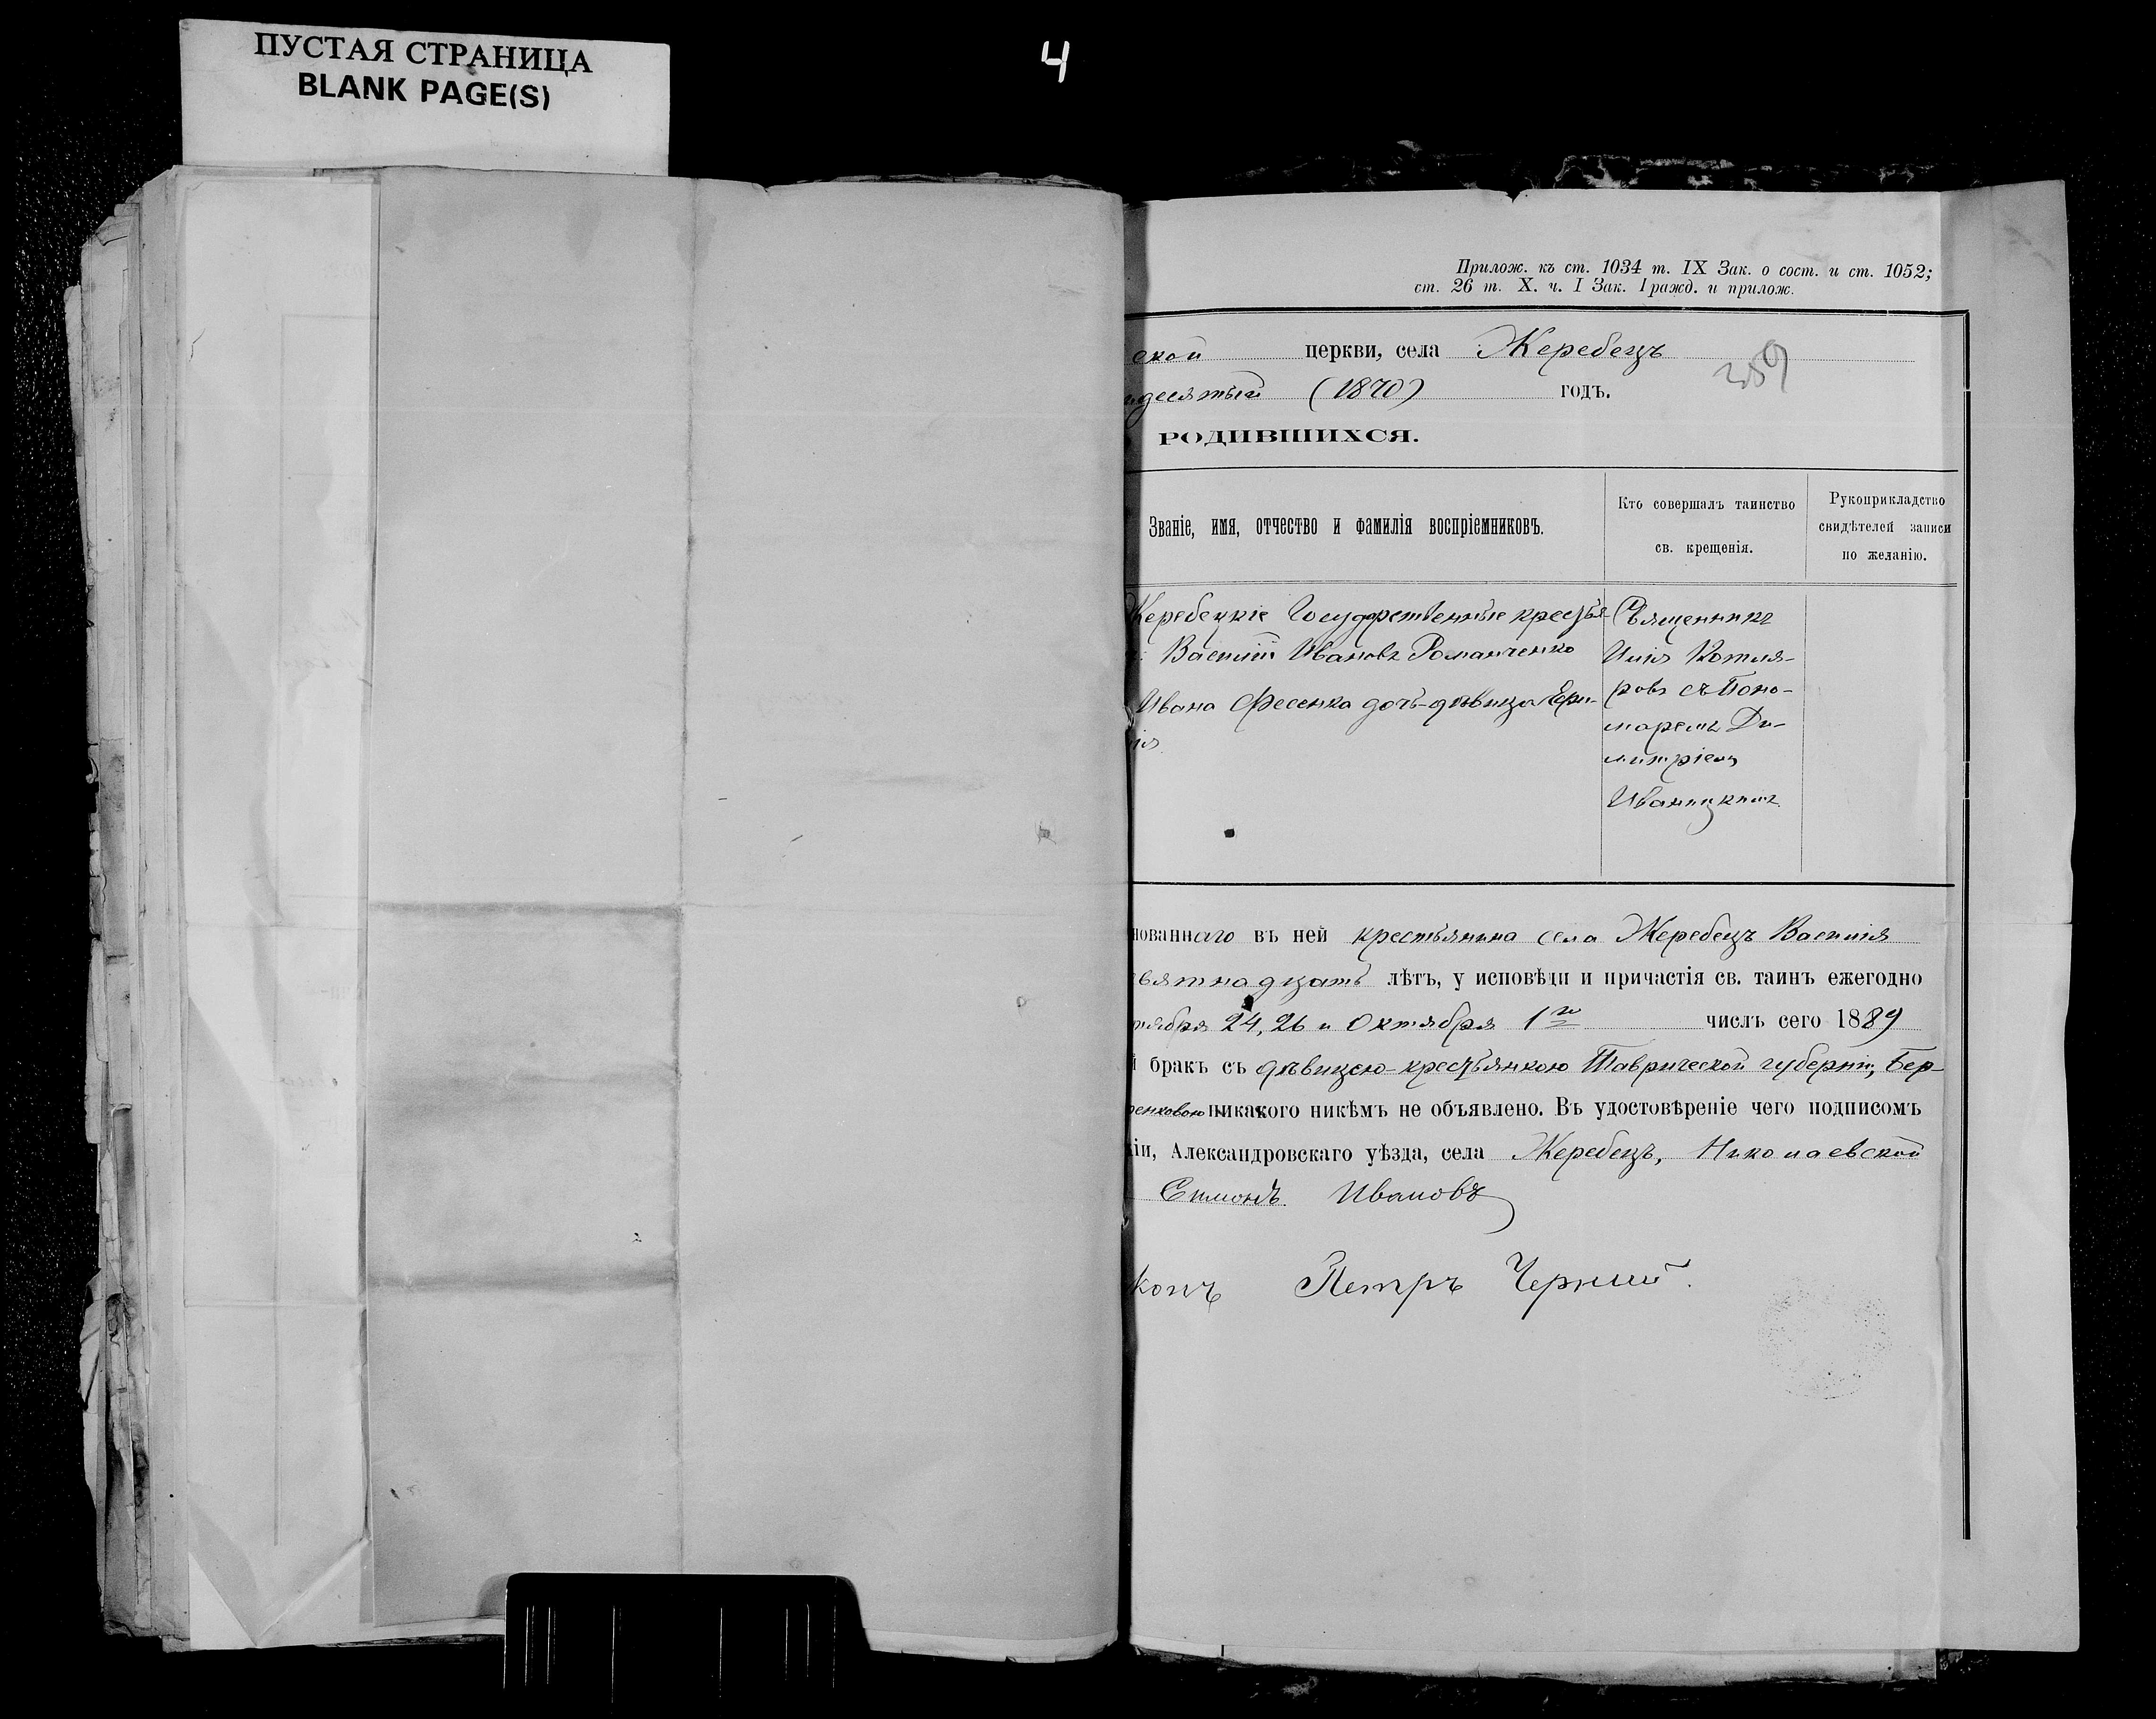 ПУСТАЯ СТРАНИЦА
BLANK PAGE(S)
4
Прилож. къ ст. 1034 т. IX Зак. о сост. и ст. 1052;
ст. 26 т. X. ч. I Зак. Гражд. и прилож.
ской церкви, села Жеребецъ
десятый (1870) годъ.
РОДИВШИХСЯ.
Званіе, имя, отчество и фамилія воспріемниковъ.
Кто совершалъ таинство
св. крещенія.
Рукоприкладство
свидѣтелей записи
по желанію.
Жеребецкіе Государственные крестья-
Василій Ивановъ Романченко
Ивана Фесенка дочь-дѣвица
Священникъ
Илія Котля-
ровъ съ Поно-
маремъ Ди-
митріемъ
Иваницкимъ
нованнаго въ ней крестьянина села Жеребецъ Василія
вятнадцать лѣтъ, у исповѣди и причастія св. таинъ ежегодно
тября 24, 26 и Октября 1го числъ сего 1889
й бракъ съ дѣвицею-крестьянкою Таврической губерніи, Бер-
енковою никакого никѣмъ не объявлено. Въ удостовѣреніе чего подписомъ
ніи, Александровскаго уѣзда, села Жеребецъ, Николаевской
Симонъ Ивановъ
Петръ Черный.